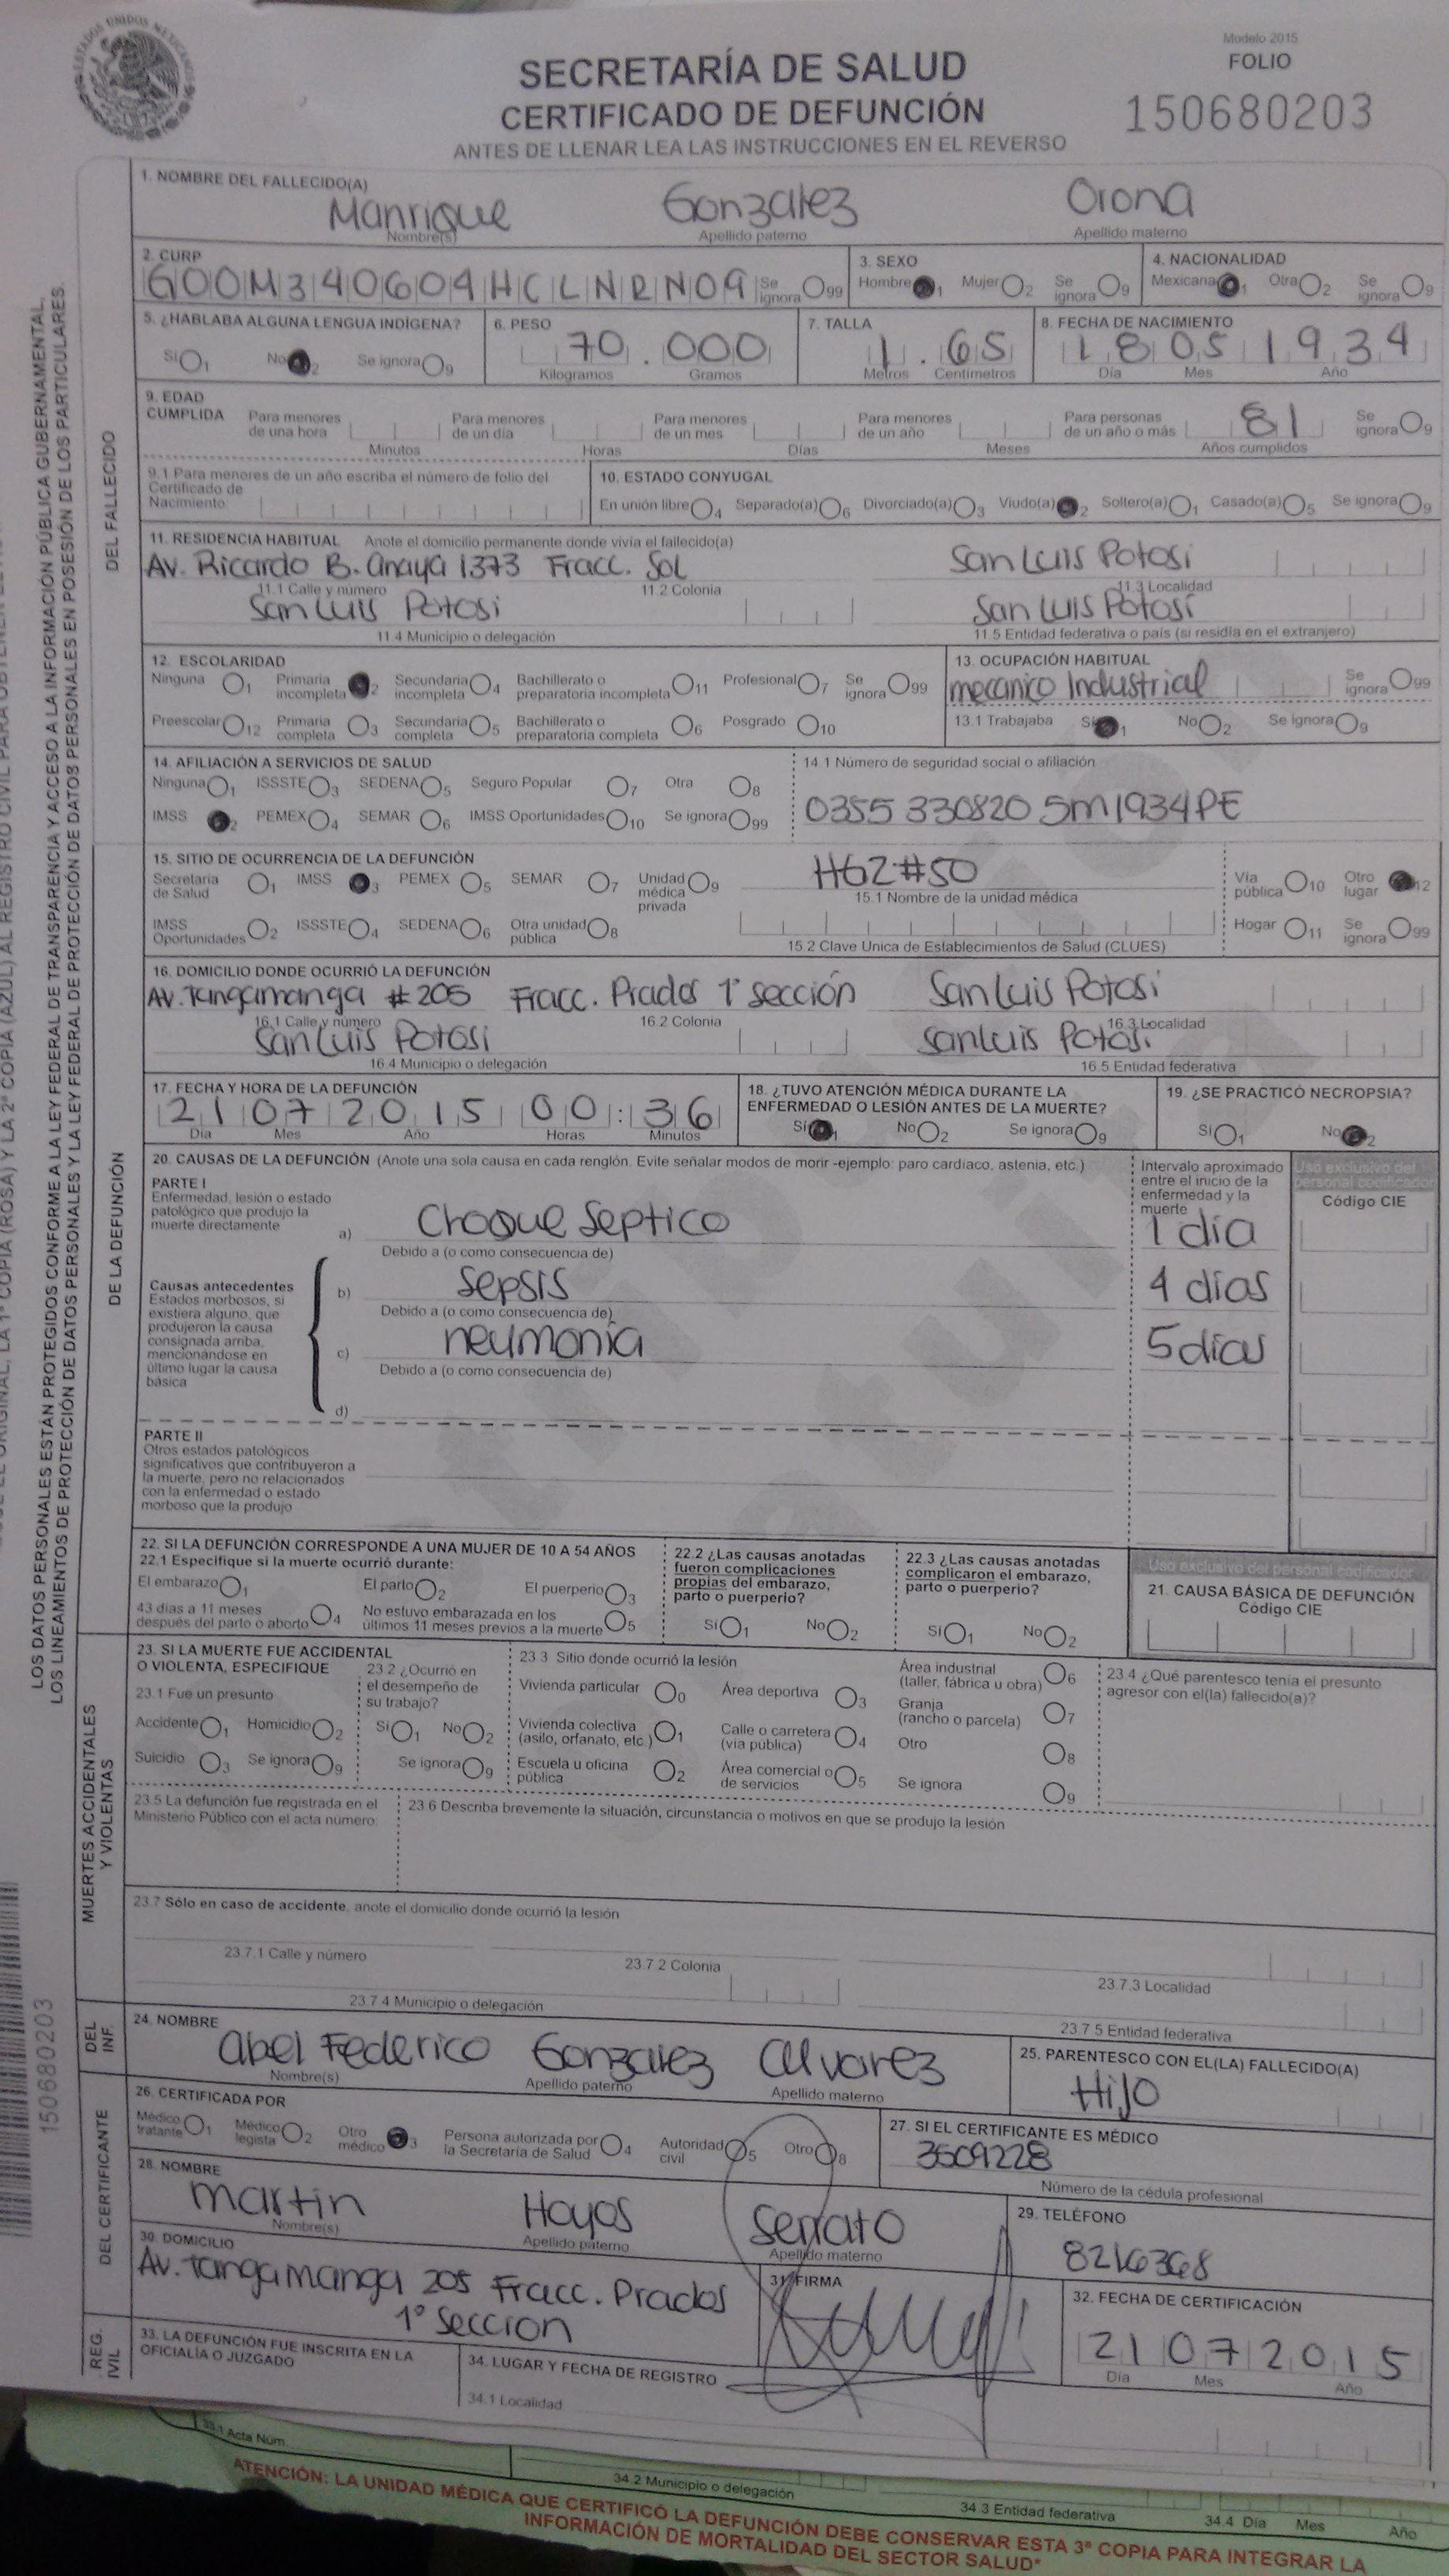 ESTADOS UNIDOS MEXICANOS
Modelo 2015
SECRETARÍA DE SALUD
FOLIO
CERTIFICADO DE DEFUNCIÓN
150680203
ANTES DE LLENAR LEA LAS INSTRUCCIONES EN EL REVERSO
LOS DATOS PERSONALES ESTÁN PROTEGIDOS CONFORME A LA LEY FEDERAL DE TRANSPARENCIA Y ACCESO A LA INFORMACIÓN PÚBLICA GUBERNAMENTAL,
LOS LINEAMIENTOS DE PROTECCIÓN DE DATOS PERSONALES Y LA LEY FEDERAL DE PROTECCIÓN DE DATOS PERSONALES EN POSESIÓN DE LOS PARTICULARES.
150680203
DEL FALLECIDO
1. NOMBRE DEL FALLECIDO(A)
Manrique Gonzalez Orona
Nombre(s) Apellido paterno Apellido materno
2. CURP 3. SEXO 4. NACIONALIDAD
GOOM340604HCLNRN09 Se ignora 99 Hombre 1 Mujer 2 Se ignora 9 Mexicana 1 Otra 2 Se ignora 9
5. ¿HABLABA ALGUNA LENGUA INDÍGENA? 6. PESO 7. TALLA 8. FECHA DE NACIMIENTO
Sí 1 No 2 Se ignora 9 70.000 1.65 18 05 1934
Kilogramos Gramos Metros Centímetros Día Mes Año
9. EDAD CUMPLIDA Para menores de una hora Para menores de un día Para menores de un mes Para menores de un año Para personas de un año o más 81 Se ignora 9
Minutos Horas Días Meses Años cumplidos
9.1 Para menores de un año escriba el número de folio del Certificado de Nacimiento
10. ESTADO CONYUGAL
En unión libre 4 Separado(a) 6 Divorciado(a) 3 Viudo(a) 2 Soltero(a) 1 Casado(a) 5 Se ignora 9
11. RESIDENCIA HABITUAL Anote el domicilio permanente donde vivía el fallecido(a)
Av. Ricardo B. Anaya 1373 Fracc. Sol San Luis Potosi
11.1 Calle y número 11.2 Colonia 11.3 Localidad
San Luis Potosi San Luis Potosí
11.4 Municipio o delegación 11.5 Entidad federativa o país (si residía en el extranjero)
12. ESCOLARIDAD 13. OCUPACIÓN HABITUAL
Ninguna 1 Primaria incompleta 2 Secundaria incompleta 4 Bachillerato o preparatoria incompleta 11 Profesional 7 Se ignora 99 mecanico Industrial Se ignora 99
Preescolar 12 Primaria completa 3 Secundaria completa 5 Bachillerato o preparatoria completa 6 Posgrado 10 13.1 Trabajaba Sí 1 No 2 Se ignora 9
14. AFILIACIÓN A SERVICIOS DE SALUD 14.1 Número de seguridad social o afiliación
Ninguna 1 ISSSTE 3 SEDENA 5 Seguro Popular 7 Otra 8
IMSS 2 PEMEX 4 SEMAR 6 IMSS Oportunidades 10 Se ignora 99 0355 330820 5M1934PE
DE LA DEFUNCIÓN
15. SITIO DE OCURRENCIA DE LA DEFUNCIÓN HGZ#50
Secretaría de Salud 1 IMSS 3 PEMEX 5 SEMAR 7 Unidad médica privada 9 15.1 Nombre de la unidad médica Vía pública 10 Otro lugar 12
IMSS Oportunidades 2 ISSSTE 4 SEDENA 6 Otra unidad pública 8 15.2 Clave Única de Establecimientos de Salud (CLUES) Hogar 11 Se ignora 99
16. DOMICILIO DONDE OCURRIÓ LA DEFUNCIÓN
Av. Tangamanga #205 Fracc. Prados 1° sección San Luis Potosi
16.1 Calle y número 16.2 Colonia 16.3 Localidad
San Luis Potosi San Luis Potosi
16.4 Municipio o delegación 16.5 Entidad federativa
17. FECHA Y HORA DE LA DEFUNCIÓN 18. ¿TUVO ATENCIÓN MÉDICA DURANTE LA ENFERMEDAD O LESIÓN ANTES DE LA MUERTE? 19. ¿SE PRACTICÓ NECROPSIA?
21 07 2015 00:36 Sí 1 No 2 Se ignora 9 Sí 1 No 2
Día Mes Año Horas Minutos
20. CAUSAS DE LA DEFUNCIÓN (Anote una sola causa en cada renglón. Evite señalar modos de morir -ejemplo: paro cardiaco, astenia, etc.)
Intervalo aproximado entre el inicio de la enfermedad y la muerte
Uso exclusivo del personal codificador
Código CIE
PARTE I
Enfermedad, lesión o estado patológico que produjo la muerte directamente
a) Choque Septico 1 dia
Debido a (o como consecuencia de)
Causas antecedentes
Estados morbosos, si existiera alguno, que produjeron la causa consignada arriba, mencionándose en último lugar la causa básica
b) Sepsis 4 dias
Debido a (o como consecuencia de)
c) neumonia 5 dias
Debido a (o como consecuencia de)
d)
PARTE II
Otros estados patológicos significativos que contribuyeron a la muerte, pero no relacionados con la enfermedad o estado morboso que la produjo
22. SI LA DEFUNCIÓN CORRESPONDE A UNA MUJER DE 10 A 54 AÑOS
22.1 Especifique si la muerte ocurrió durante:
El embarazo 1 El parto 2 El puerperio 3
43 días a 11 meses después del parto o aborto 4 No estuvo embarazada en los últimos 11 meses previos a la muerte 5
22.2 ¿Las causas anotadas fueron complicaciones propias del embarazo, parto o puerperio?
Sí 1 No 2
22.3 ¿Las causas anotadas complicaron el embarazo, parto o puerperio?
Sí 1 No 2
Uso exclusivo del personal codificador
21. CAUSA BÁSICA DE DEFUNCIÓN
Código CIE
MUERTES ACCIDENTALES Y VIOLENTAS
23. SI LA MUERTE FUE ACCIDENTAL O VIOLENTA, ESPECIFIQUE
23.1 Fue un presunto
Accidente 1 Homicidio 2
Suicidio 3 Se ignora 9
23.2 ¿Ocurrió en el desempeño de su trabajo?
Sí 1 No 2
Se ignora 9
23.3 Sitio donde ocurrió la lesión
Vivienda particular 0 Área deportiva 3 Área industrial (taller, fábrica u obra) 6
Vivienda colectiva (asilo, orfanato, etc.) 1 Calle o carretera (vía pública) 4 Granja (rancho o parcela) 7
Otro 8
Escuela u oficina pública 2 Área comercial o de servicios 5 Se ignora 9
23.4 ¿Qué parentesco tenía el presunto agresor con el(la) fallecido(a)?
23.5 La defunción fue registrada en el Ministerio Público con el acta número:
23.6 Describa brevemente la situación, circunstancia o motivos en que se produjo la lesión
23.7 Sólo en caso de accidente, anote el domicilio donde ocurrió la lesión
23.7.1 Calle y número 23.7.2 Colonia 23.7.3 Localidad
23.7.4 Municipio o delegación 23.7.5 Entidad federativa
DEL INF.
24. NOMBRE
Abel Federico Gonzalez Alvarez
Nombre(s) Apellido paterno Apellido materno
25. PARENTESCO CON EL(LA) FALLECIDO(A)
Hijo
DEL CERTIFICANTE
26. CERTIFICADA POR
Médico tratante 1 Médico legista 2 Otro médico 3 Persona autorizada por la Secretaría de Salud 4 Autoridad civil 5 Otro 8
27. SI EL CERTIFICANTE ES MÉDICO
3609228
Número de la cédula profesional
28. NOMBRE
Martin Hoyos Serrato
Nombre(s) Apellido paterno Apellido materno
29. TELÉFONO
8216368
30. DOMICILIO
Av. Tangamanga 205 Fracc. Prados
1° Seccion
31. FIRMA
32. FECHA DE CERTIFICACIÓN
21 07 2015
Día Mes Año
REG. CIVIL
33. LA DEFUNCIÓN FUE INSCRITA EN LA OFICIALÍA O JUZGADO
34. LUGAR Y FECHA DE REGISTRO
34.1 Localidad
33.1 Acta Núm.
34.2 Municipio o delegación
34.3 Entidad federativa
34.4 Día Mes Año
ATENCIÓN: LA UNIDAD MÉDICA QUE CERTIFICÓ LA DEFUNCIÓN DEBE CONSERVAR ESTA 3ª COPIA PARA INTEGRAR LA
INFORMACIÓN DE MORTALIDAD DEL SECTOR SALUD*